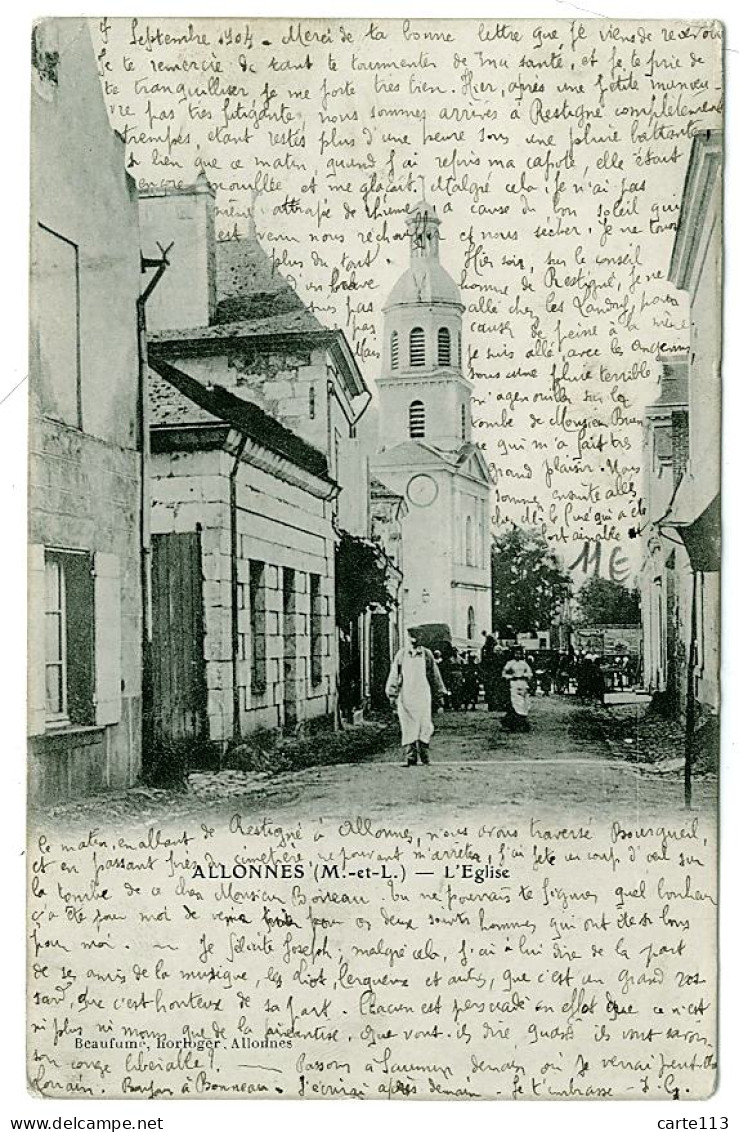 7 Septembre 1904 - Merci de ta bonne lettre que je viens de recevoir
Je te remercie de tant te tourmenter de ma santé, et je te prie de
te tranquilliser je me porte très bien. Hier, après une petite manœu-
vre pas très fatigante, nous sommes arrivés à Restigné complètement
trempés, étant restés plus d'une heure sous une pluie battante
si bien que ce matin, quand j'ai repris ma capote, elle était
encore mouillée et me glaçait. Malgré cela, je n'ai pas
même attrapé de rhume à cause du bon soleil qui
est venu nous réchauffer et nous sécher. Je ne tousse
plus du tout. Hier soir, sur le conseil
d'un brave homme de Restigné, je ne
suis pas allé chez les
causer de peine à la mère
je suis allé avec les
sous une pluie terrible
m'agenouiller sur la
tombe de Monsieur
ce qui m'a fait très
grand plaisir. Nous
sommes ensuite allés
chez
fort aimable
11E
Ce matin, en allant de Restigné à Allonnes, nous avons traversé Bourgueil,
et en passant près du cimetière, ne pouvant m'arrêter, j'ai jeté un coup d'œil sur
ALLONNES (M.-et-L.) — L'Eglise
la tombe de ce cher Monsieur Boireau. Tu ne pourrais te figurer quel bonheur
ç'a été pour moi de os deux saints hommes qui ont été si bons
pour moi. — Je félicite Joseph; malgré cela, j'ai à lui dire de la part
de ses amis de la musique, les diot, Lerqueux et autres, que c'est un grand ros
sard, que c'est honteux de sa part. Chacun est persuadé en effet que ce n'est
ni plus ni moins que de la fainéantise. Que vont-ils dire, quand ils vont savoir
Beaufumé, horloger, Allonnes
son congé libérable! — Passons à Saumur demain où je verrai peut-être
Lorrain. Bonjour à Bonneau. J'écrirai après demain - Je t'embrasse - J. G.
carte113
www.carte113.com